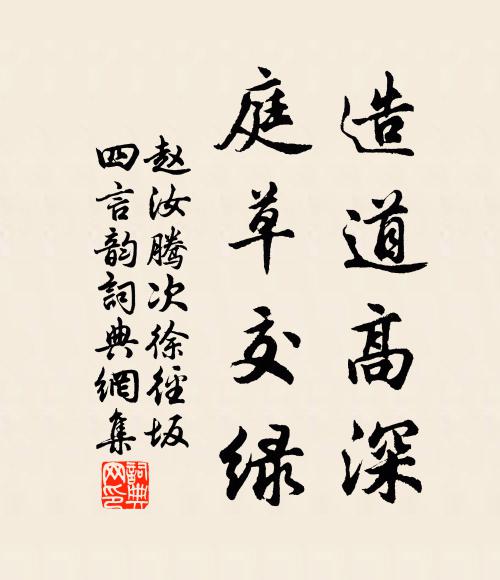 造道高深
庭草交绿
赵汝腾次徐径坂
四言韵詞典網集
詞典网印